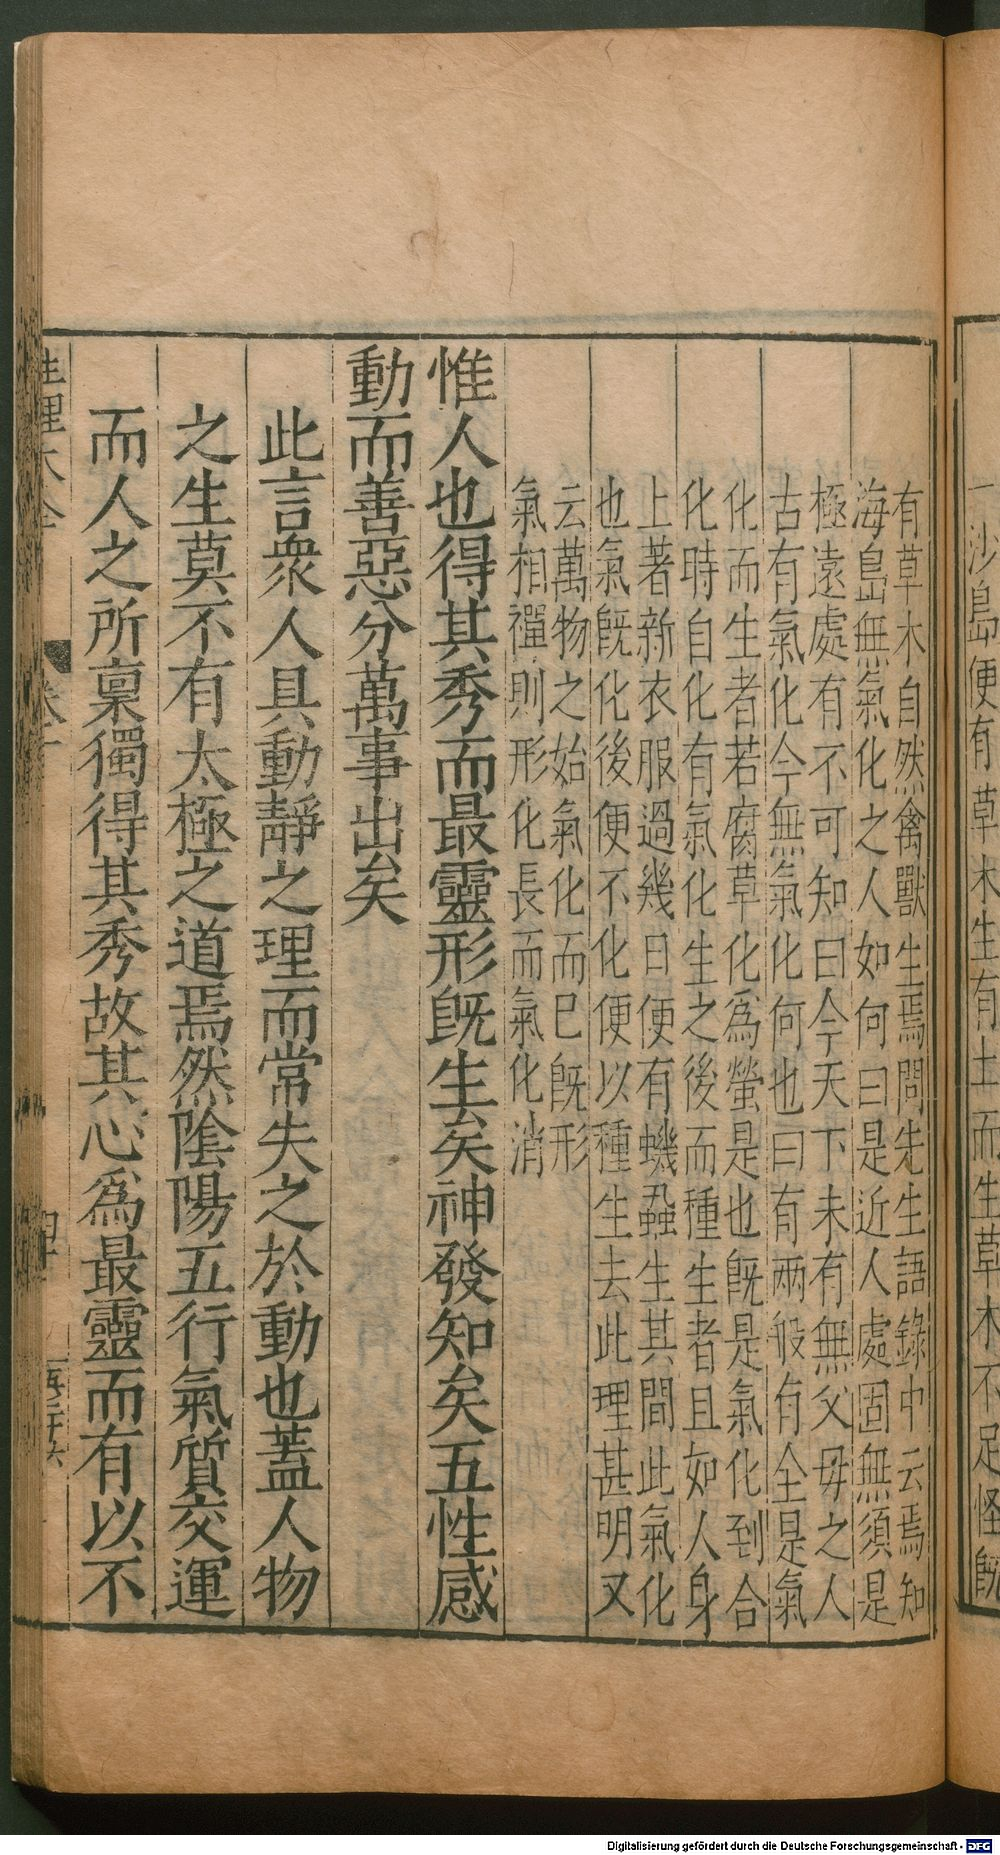 一沙島便有草木生有土而生草木不足怪旣
有草木自然禽獸生焉問先生語錄中云焉知
海島無氣化之人如何曰是近人處固無須是
極遠處有不可知曰今天下未有無父母之人
古有氣化今無氣化何也曰有兩般有全是氣
化而生者若腐草化爲螢是也旣是氣化到合
化時自化有氣化生之後而種生者且如人身
上著新衣服過幾日便有蟣蝨生其間此氣化
也氣旣化後便不化便以種生去此理甚明又
云萬物之始氣化而已旣形
氣相禪則形化長而氣化消
惟人也得其秀而最靈形旣生矣神發知矣五性感
動而善惡分萬事出矣
此言衆人具動靜之理而常失之於動也蓋人物
之生莫不有太極之道焉然陰陽五行氣質交運
而人之所稟獨得其秀故其心爲最靈而有以不
性理大全
Digitalisierung gefördert durch die Deutsche Forschungsgemeinschaft - DFG